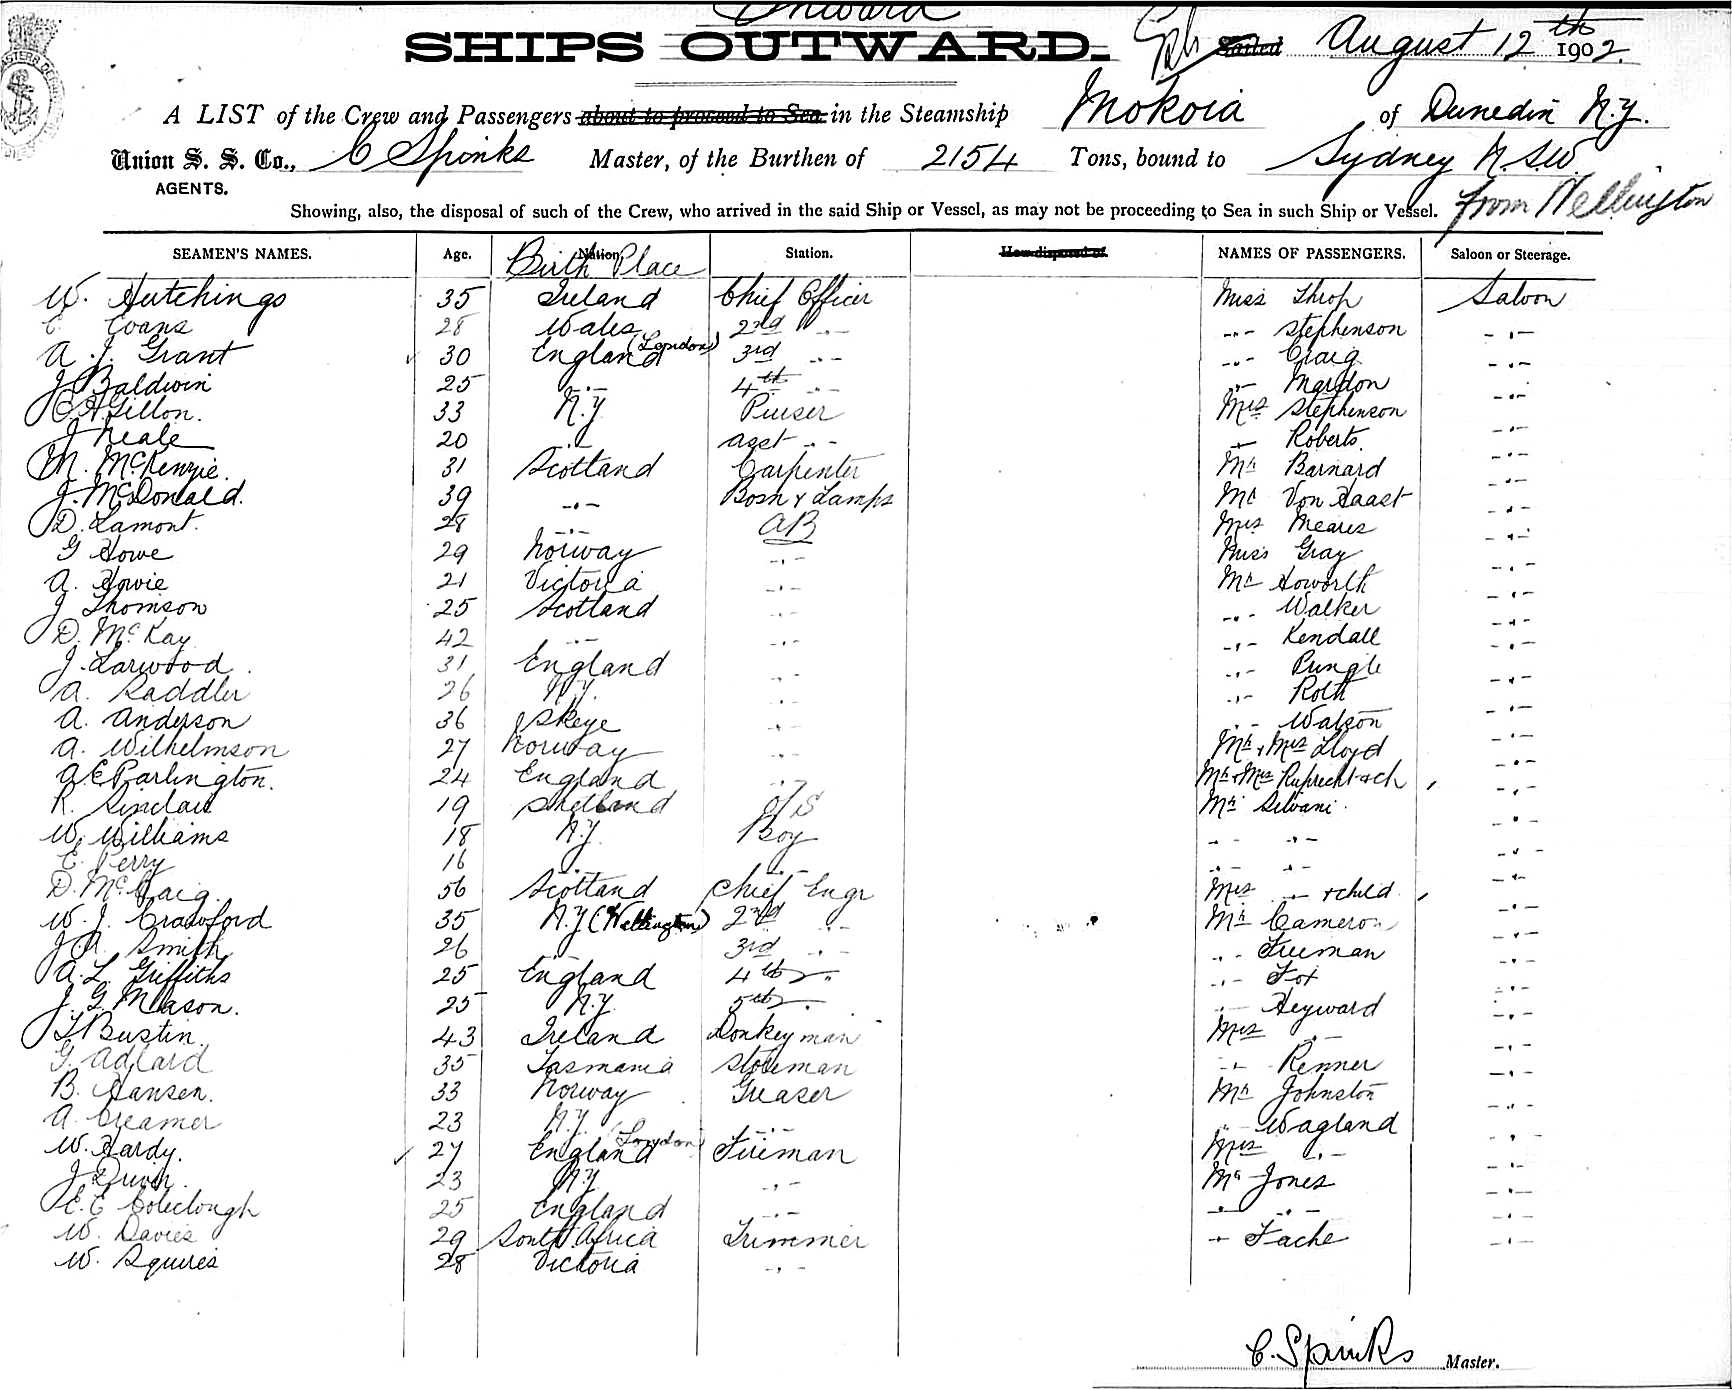 Inward
SHIPS OUTWARD. Sailed August 12th 1902.
A LIST of the Crew and Passengers about to proceed to Sea in the Steamship Mokoia of Dunedin N.Z.
Union S. S. Co., C Spinks Master, of the Burthen of 2154 Tons, bound to Sydney N.S.W.
AGENTS.
Showing, also, the disposal of such of the Crew, who arrived in the said Ship or Vessel, as may not be proceeding to Sea in such Ship or Vessel. from Wellington
SEAMEN'S NAMES. Age. Nation Birth Place Station. How disposed of. NAMES OF PASSENGERS. Saloon or Steerage.
W. Hutchings 35 Ireland Chief Officer Miss Throp Saloon
E Evans 28 Wales 2nd " -"- Stephenson -"-
A. J. Grant 30 England (London) 3rd -"- -"- Craig -"-
J Baldwin 25 -"- 4th -"- -"- Mardon -"-
C A Gillon. 33 N.Z Purser Mrs Stephenson -"-
J Neale 20 " asst -"- -"- Roberts. -"-
M. McKenzie. 31 Scotland Carpenter Mr Barnard -"-
J. McDonald. 39 -"- Bosn & Lamps Mr Von Haast -"-
D. Lamont. 28 -"- AB Mrs Meares -"-
G Howe 29 Norway -"- Miss Gray -"-
A. Howie 21 Victoria -"- Mr Howorth -"-
J Thomson 25 Scotland -"- -"- Walker -"-
D. McKay 42 -"- -"- -"- Kendall -"-
J. Larwood. 31 England -"- -"- Pringle -"-
A. Raddler 26 N.Z. -"- -"- Roth -"-
A. Anderson 36 Skeye -"- -"- Watson -"-
A. Wilhelmson 27 Norway -"- Mr & Mrs Lloyd -"-
A.E Parlington. 24 England -"- Mr & Mrs Ruprecht & ch -"-
R. Sinclair 19 Shetland O/S Mr Silvani -"-
W. Williams 18 N.Z. Boy -"- -"- -"-
E. Perry 16 -"- -"- -"- -"- -"-
D. McCraig. 56 Scotland Chief Engr Mrs -"- & child. -"-
W. J. Crawford 35 N.Z (Wellington) 2nd -"- Mr Cameron -"-
J. A. Smith 26 3rd -"- -"- Freeman -"-
A. L Griffiths 25 England 4th -"- -"- Fox -"-
J. G. Mason. 25 N.Z. 5th -"- -"- Heyward -"-
T Bustin. 43 Ireland Donkeyman Mrs -"- -"-
G. Adlard 35 Tasmania Storeman -"- Renner -"-
B. Hansen. 33 Norway Greaser Mr Johnston -"-
A. Creamer 23 N.Z. -"- -"- Wagland -"-
W. Hardy. 27 England (London) Fireman Mrs -"- -"-
J Driver. 23 N.Z -"- Mr Jones -"-
E. E Coleclough 25 England -"- -"- -"- -"-
W. Davies 29 South Africa Trimmer -"- Fache -"-
W. Squires 28 Victoria -"-
C. Spinks Master.